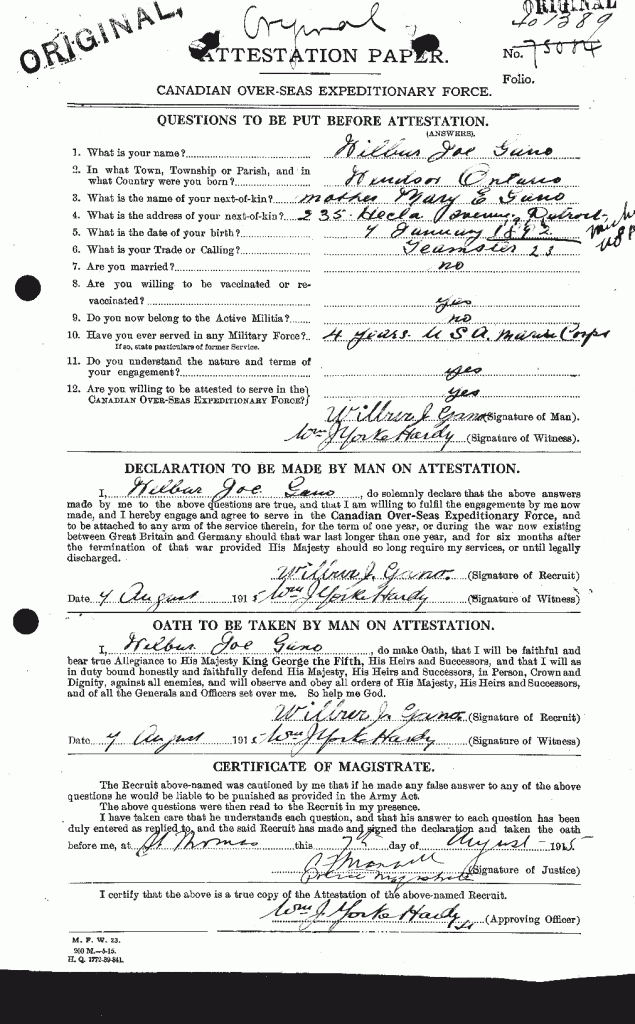 ORIGINAL,
Original
ORIGINAL
401389
ATTESTATION PAPER.
No. 75084
Folio.
CANADIAN OVER-SEAS EXPEDITIONARY FORCE.
QUESTIONS TO BE PUT BEFORE ATTESTATION.
(ANSWERS).
1. What is your name? Wilbur Joe Gano
2. In what Town, Township or Parish, and in
what Country were you born? Windsor Ontario
3. What is the name of your next-of-kin? mother Mary E Gano
4. What is the address of your next-of-kin? 235 Hecla Avenue, Detroit
Mich
USA
5. What is the date of your birth? 7 January 1892
6. What is your Trade or Calling? Teamster 23
7. Are you married? no
8. Are you willing to be vaccinated or re-
vaccinated? yes
9. Do you now belong to the Active Militia? no
10. Have you ever served in any Military Force? 4 years U S A. Marine Corps
If so, state particulars of former Service.
11. Do you understand the nature and terms of
your engagement? yes
12. Are you willing to be attested to serve in the
CANADIAN OVER-SEAS EXPEDITIONARY FORCE? yes
Wilbur J. Gano (Signature of Man).
Wm J Yorke Hardy (Signature of Witness).
DECLARATION TO BE MADE BY MAN ON ATTESTATION.
I, Wilbur Joe Gano, do solemnly declare that the above answers
made by me to the above questions are true, and that I am willing to fulfil the engagements by me now
made, and I hereby engage and agree to serve in the Canadian Over-Seas Expeditionary Force, and
to be attached to any arm of the service therein, for the term of one year, or during the war now existing
between Great Britain and Germany should that war last longer than one year, and for six months after
the termination of that war provided His Majesty should so long require my services, or until legally
discharged.
Wilbur J. Gano. (Signature of Recruit)
Date 7 August 1915 Wm J Yorke Hardy (Signature of Witness)
OATH TO BE TAKEN BY MAN ON ATTESTATION.
I, Wilbur Joe Gano, do make Oath, that I will be faithful and
bear true Allegiance to His Majesty King George the Fifth, His Heirs and Successors, and that I will as
in duty bound honestly and faithfully defend His Majesty, His Heirs and Successors, in Person, Crown and
Dignity, against all enemies, and will observe and obey all orders of His Majesty, His Heirs and Successors,
and of all the Generals and Officers set over me. So help me God.
Wilbur J. Gano. (Signature of Recruit)
Date 7 August 1915 Wm J Yorke Hardy (Signature of Witness)
CERTIFICATE OF MAGISTRATE.
The Recruit above-named was cautioned by me that if he made any false answer to any of the above
questions he would be liable to be punished as provided in the Army Act.
The above questions were then read to the Recruit in my presence.
I have taken care that he understands each question, and that his answer to each question has been
duly entered as replied to, and the said Recruit has made and signed the declaration and taken the oath
before me, at St Thomas this 7th day of August 1915
(Signature of Justice)
Police Magistrate
I certify that the above is a true copy of the Attestation of the above-named Recruit.
Wm J. Yorke Hardy Lt (Approving Officer)
M. F. W. 23.
200 M.—5-15.
H. Q. 1772-39-841.